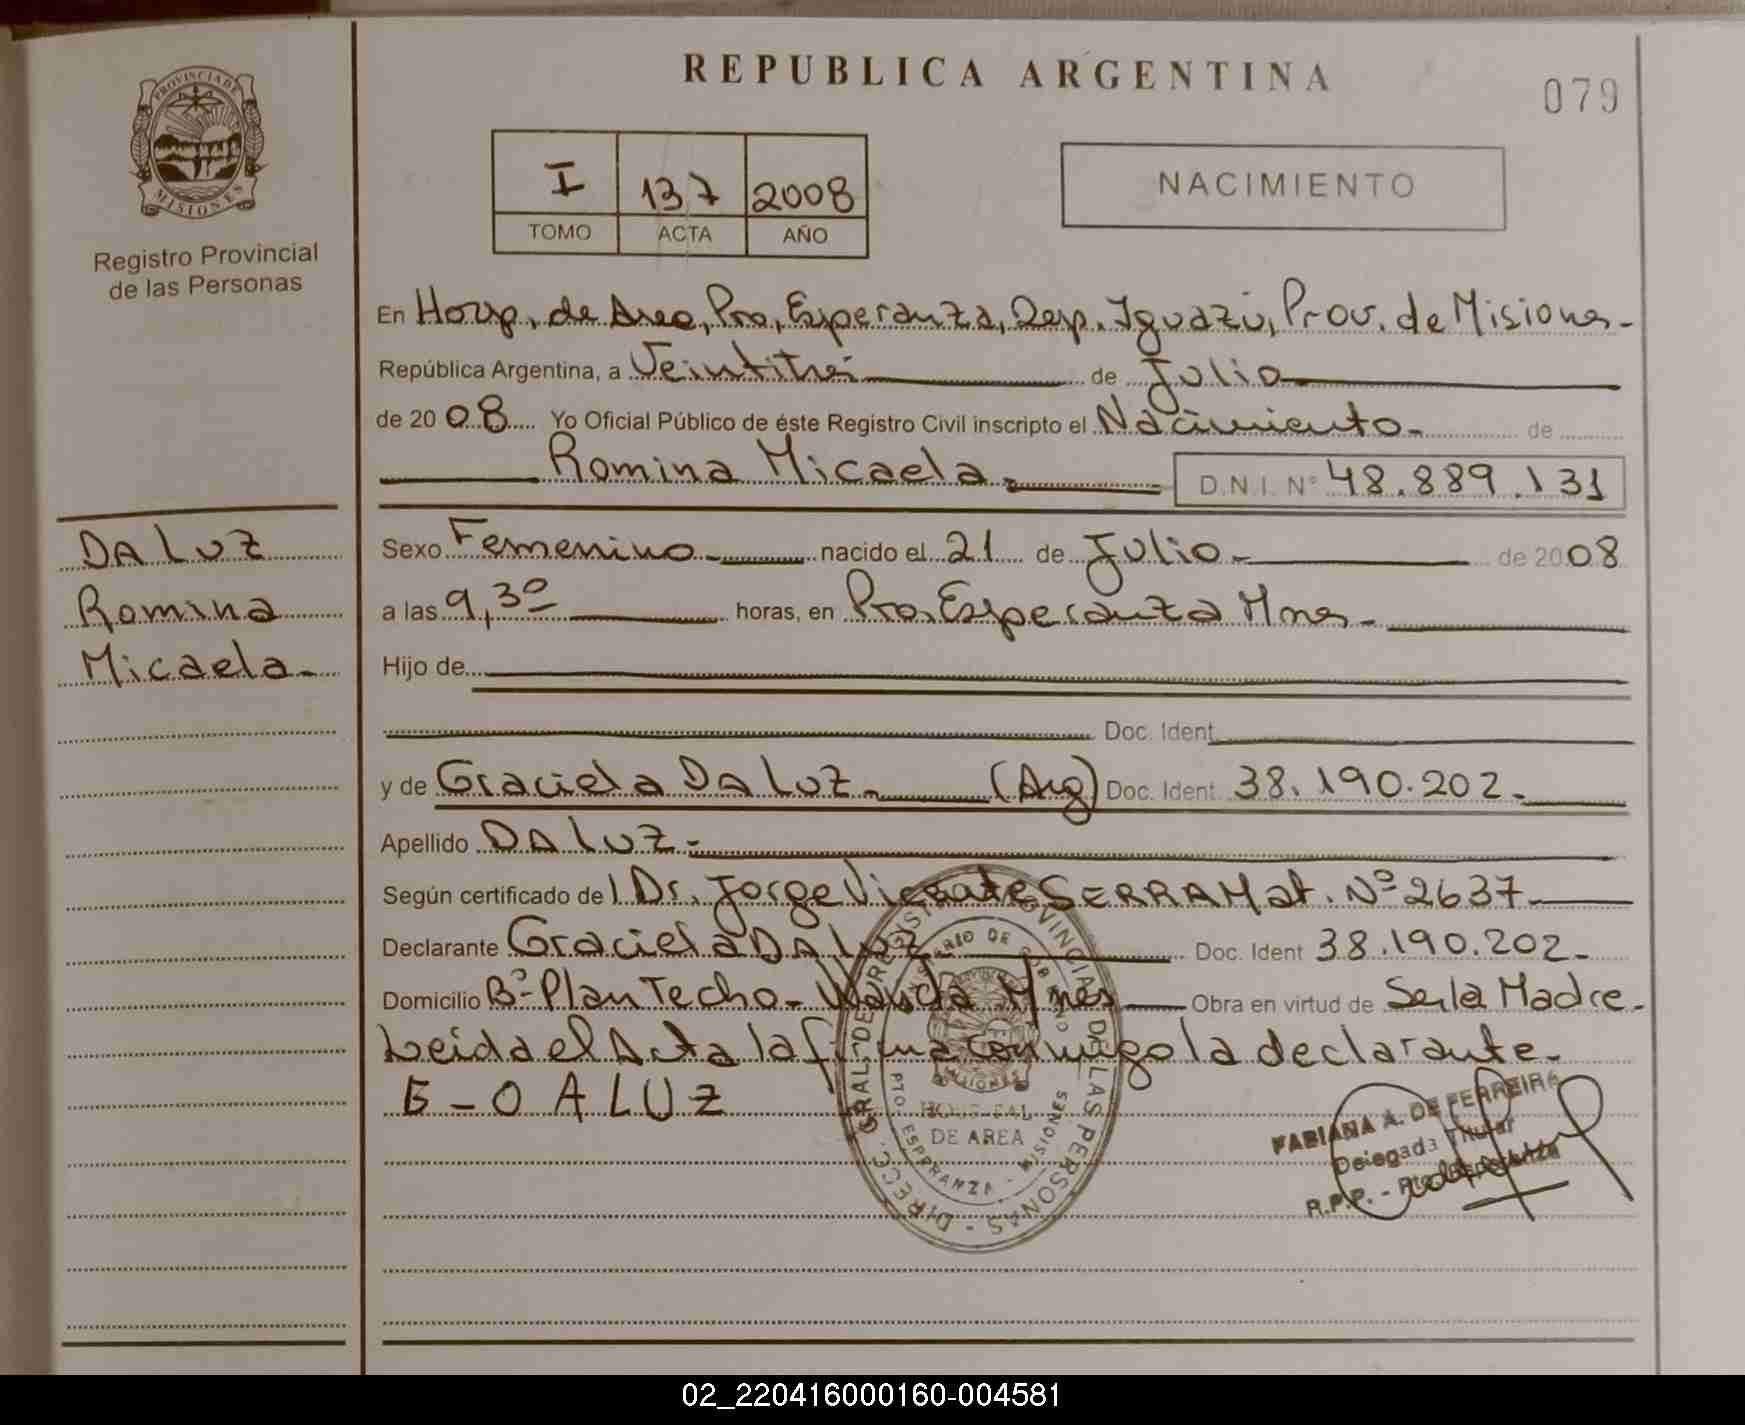 REPUBLICA ARGENTINA
079
PROVINCIA DE
MISIONES
Registro Provincial
de las Personas
I 137 2008
TOMO ACTA AÑO
NACIMIENTO
En Hosp. de Area, Pto, Esperanza, Dep. Iguazú, Prov. de Misiones-
República Argentina, a Veintitrés de Julio
de 2008 Yo Oficial Público de éste Registro Civil inscripto el Nacimiento- de
Romina Micaela D.N.I. Nº 48.889.131
DA LUZ
Romina
Micaela-
Sexo Femenino- nacido el 21 de Julio- de 2008
a las 9,30 horas, en Pto. Esperanza Mnes-
Hijo de
Doc. Ident.
y de Graciela DA LUZ- (Arg) Doc. Ident. 38.190.202-
Apellido DA LUZ-
Según certificado del Dr. Jorge Vicente SERRA Mat. Nº 2637
Declarante Graciela DA LUZ- Doc. Ident 38.190.202-
Domicilio Bº Plan Techo- Wanda Mnes Obra en virtud de Ser la Madre-
Leida el Acta la firma conmigo la declarante-
G-DALUZ
DIRECC. GRAL. DE REGISTRO PROVINCIAL DE LAS PERSONAS
MINISTERIO DE GOBIERNO
MISIONES
HOSPITAL
DE AREA
PTO. ESPERANZA - MISIONES
FABIANA A. DE FERREIRA
Delegada Titular
R.P.P. - Pto. Esperanza
02_220416000160-004581